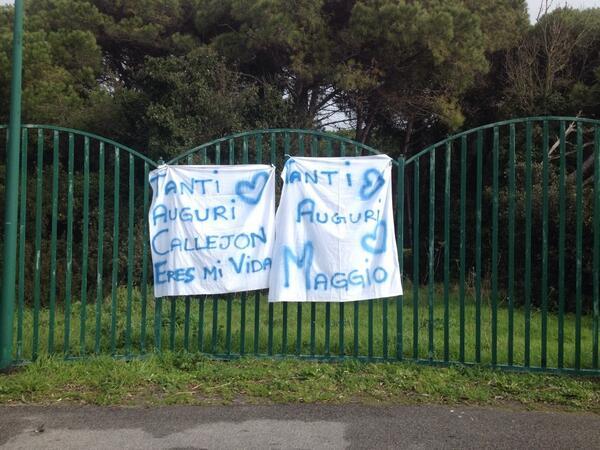 TANTI
AUGURI
CALLEJON
ERES MI VIDA
TANTI
AUGURI
MAGGIO